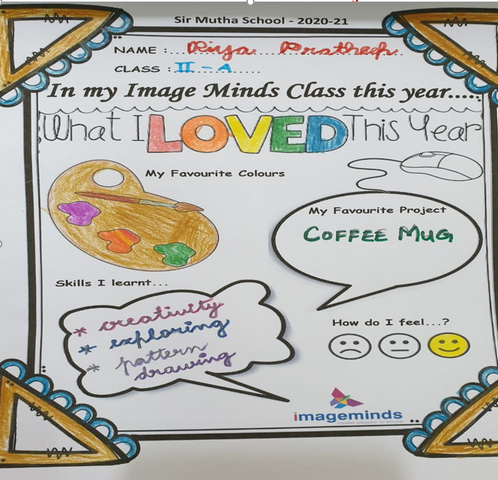 Sir Mutha School - 2020-21
NAME :....Riya Pratheep...
CLASS : II - A......
In my Image Minds Class this year.....
What I LOVED This Year
My Favourite Colours
My Favourite Project
COFFEE MUG
Skills I learnt...
* creativity
* exploring
* pattern
drawing
How do I feel...?
imageminds